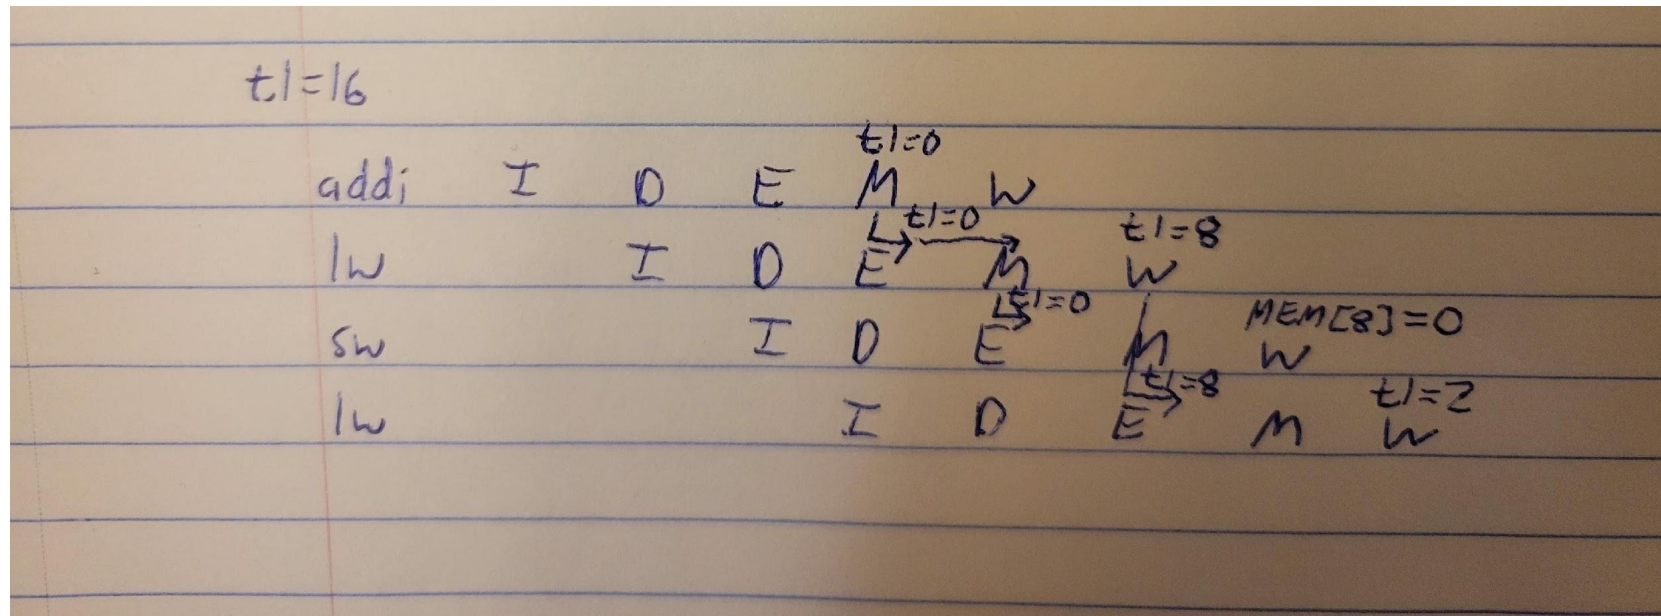 t1=16
t1=0
addi I D E M W
t1=0 t1=8
lw I D E M W
t1=0 MEM[8]=0
sw I D E M W
t1=8 t1=2
lw I D E M W